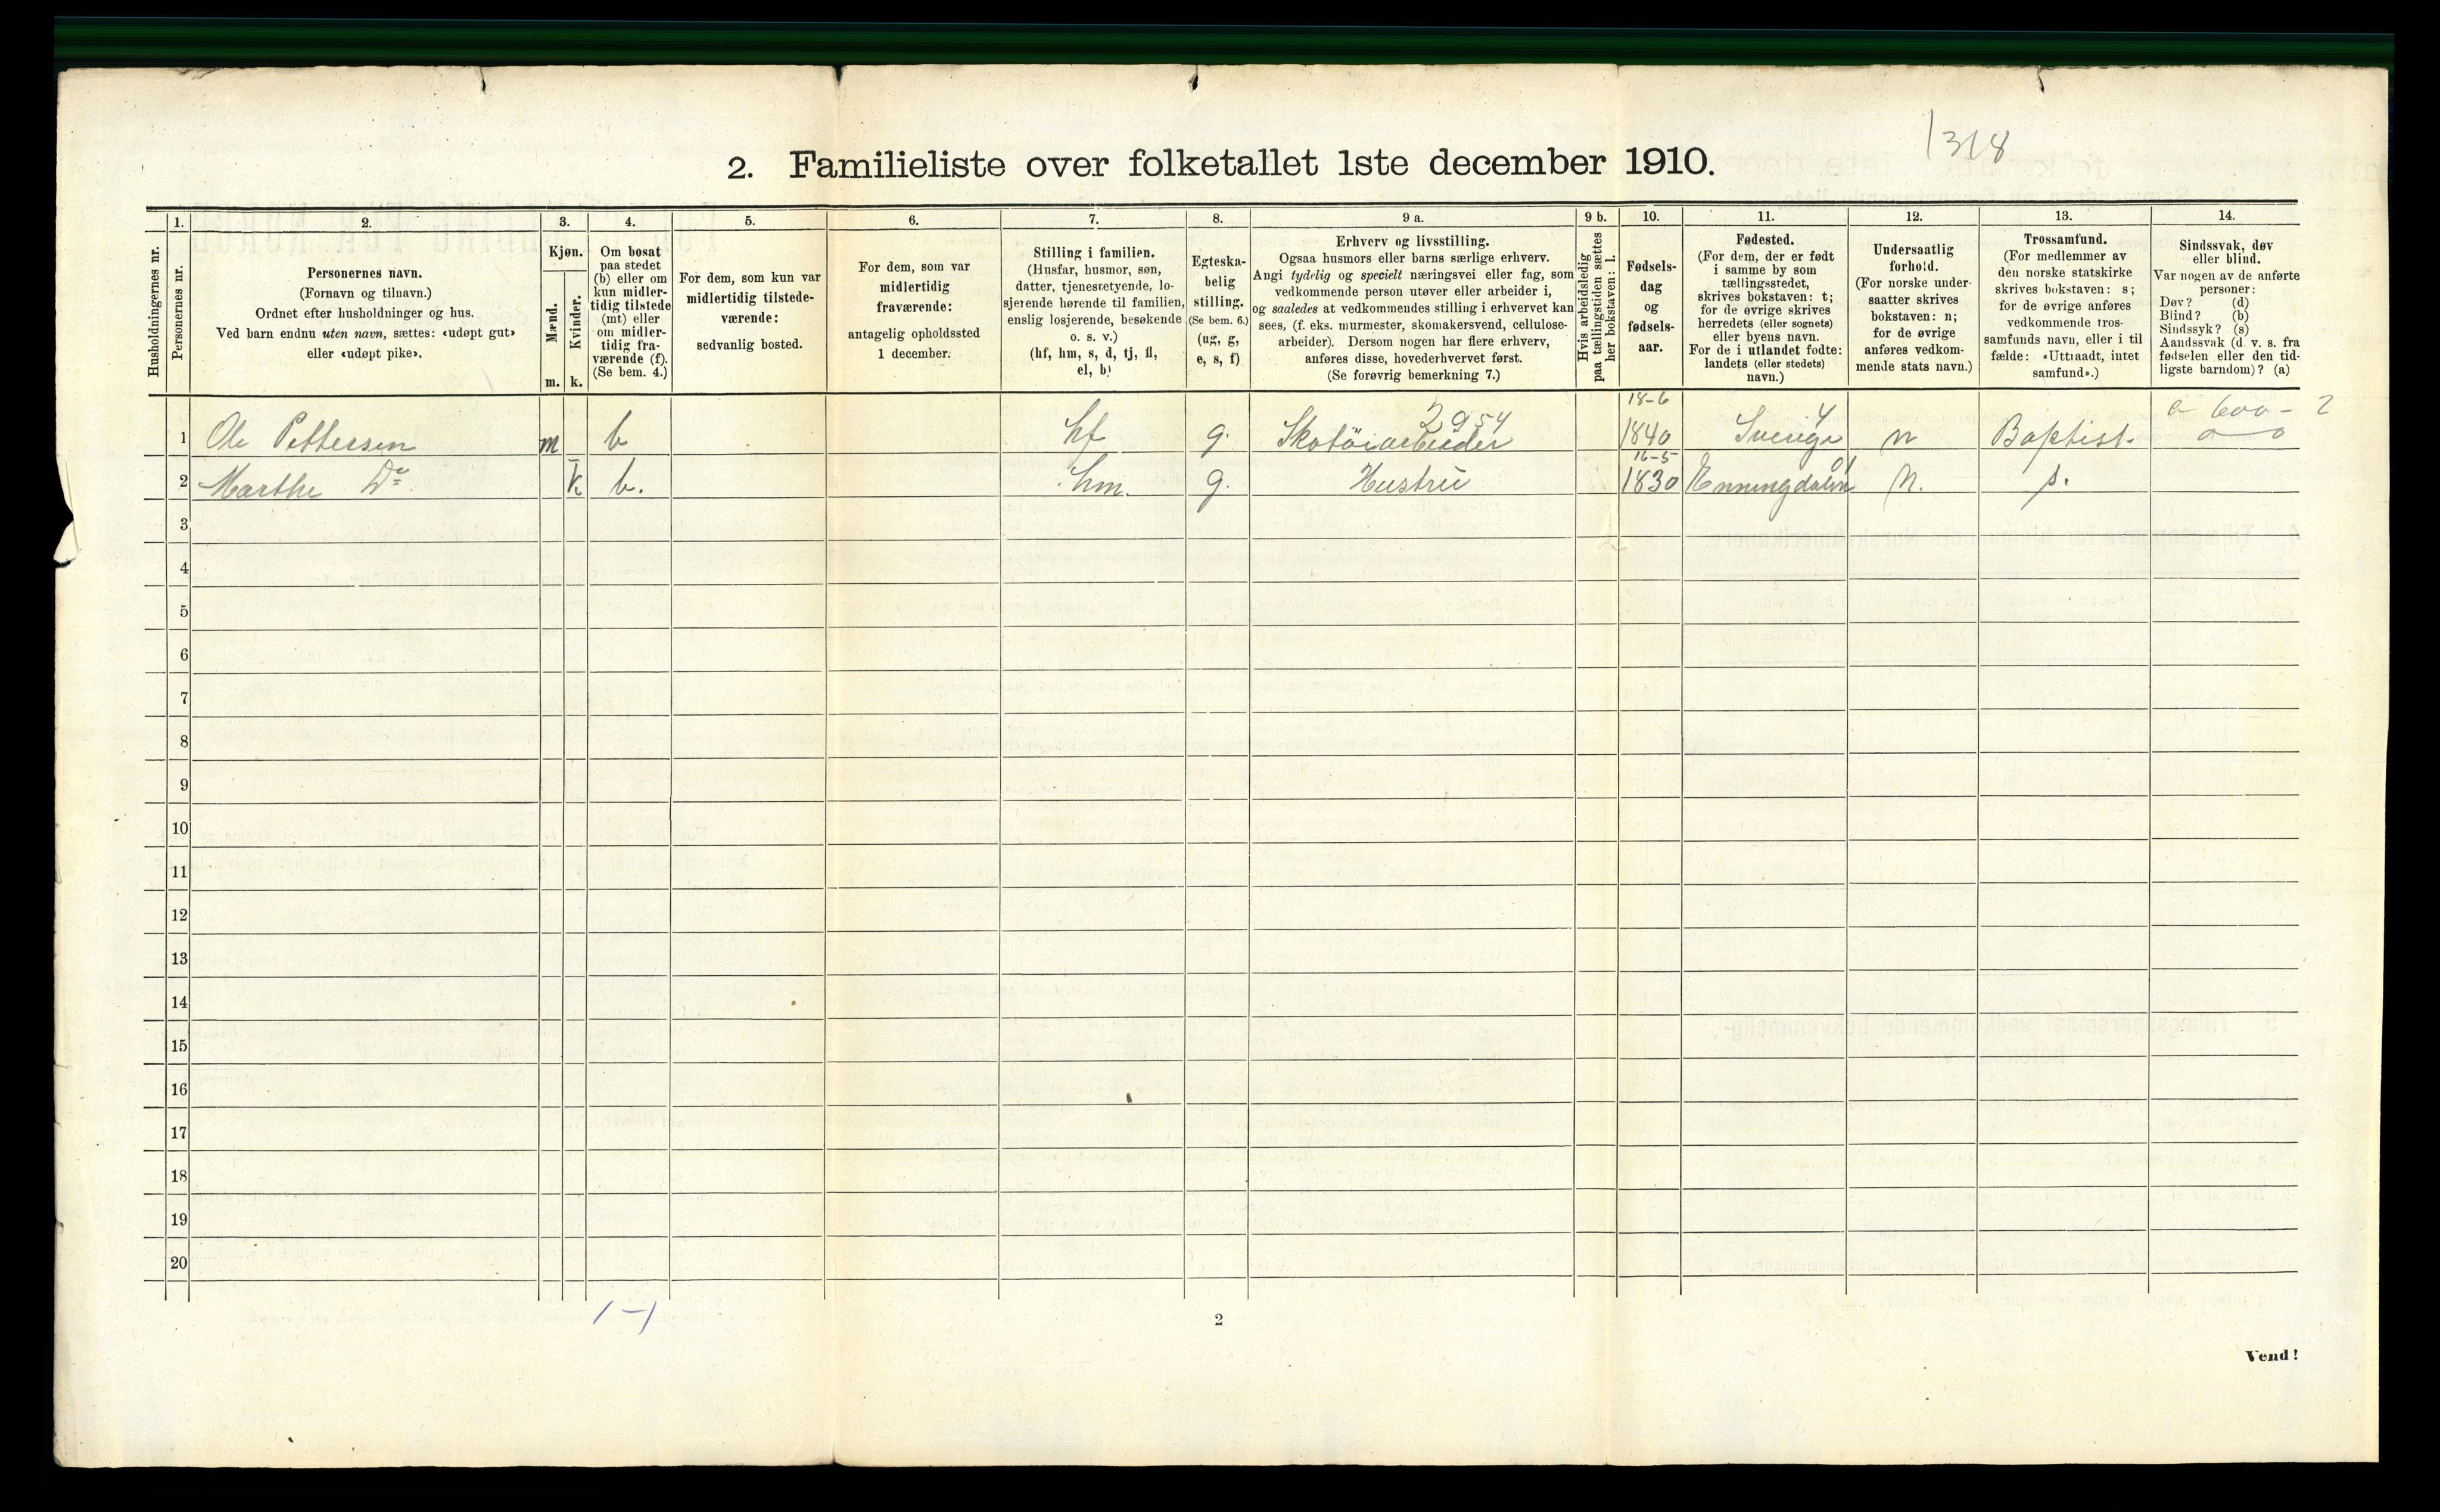 1318
2. Familieliste over folketallet 1ste december 1910.
Husholdningernes nr.
1.
Personernes nr.
2.
Personernes navn.
(Fornavn og tilnavn.)
Ordnet efter husholdninger og hus.
Ved barn endnu uten navn, sættes: «udøpt gut»
eller «udøpt pike».
3.
Kjøn.
Mænd.
Kvinder.
m. k.
4.
Om bosat
paa stedet
(b) eller om
kun midler-
tidig tilstede
(mt) eller
om midler-
tidig fra-
værende (f).
(Se bem. 4.)
5.
For dem, som kun var
midlertidig tilstede-
værende:
sedvanlig bosted.
6.
For dem, som var
midlertidig
fraværende:
antagelig opholdssted
1 december.
7.
Stilling i familien.
(Husfar, husmor, søn,
datter, tjenestetyende, lo-
sjerende hørende til familien,
enslig losjerende, besøkende
o. s. v.)
(hf, hm, s, d, tj, fl,
el, b)
8.
Egteska-
belig
stilling.
(Se bem. 6.)
(ug, g,
e, s, f)
9 a.
Erhverv og livsstilling.
Ogsaa husmors eller barns særlige erhverv.
Angi tydelig og specielt næringsvei eller fag, som
vedkommende person utøver eller arbeider i,
og saaledes at vedkommendes stilling i erhvervet kan
sees, (f. eks. murmester, skomakersvend, cellulose-
arbeider). Dersom nogen har flere erhverv,
anføres disse, hovederhvervet først.
(Se forøvrig bemerkning 7.)
9 b.
Hvis arbeidsledig
paa tællingstiden sættes
her bokstaven: l.
10.
Fødsels-
dag
og
fødsels-
aar.
11.
Fødested.
(For dem, der er født
i samme by som
tællingsstedet,
skrives bokstaven: t;
for de øvrige skrives
herredets (eller sognets)
eller byens navn.
For de i utlandet fødte:
landets (eller stedets)
navn.)
12.
Undersaatlig
forhold.
(For norske under-
saatter skrives
bokstaven: n;
for de øvrige
anføres vedkom-
mende stats navn.)
13.
Trossamfund.
(For medlemmer av
den norske statskirke
skrives bokstaven: s;
for de øvrige anføres
vedkommende tros-
samfunds navn, eller i til
fælde: «Uttraadt, intet
samfund».)
14.
Sindssvak, døv
eller blind.
Var nogen av de anførte
personer:
Døv? (d)
Blind? (b)
Sindssyk? (s)
Aandssvak (d. v. s. fra
fødselen eller den tid-
ligste barndom)? (a)
2954 18-6 4 600 - 2
1 Ole Pettersen m b hf g. Skotöiarbeider 1840 Sverige n Baptist.
16-5 01
2 Marthe Do k b. hm. g. Hustru 1830 Enningdalen n. s.
3
4
5
6
7
8
9
10
11
12
13
14
15
16
17
18
19
20
1-1
2
Vend!